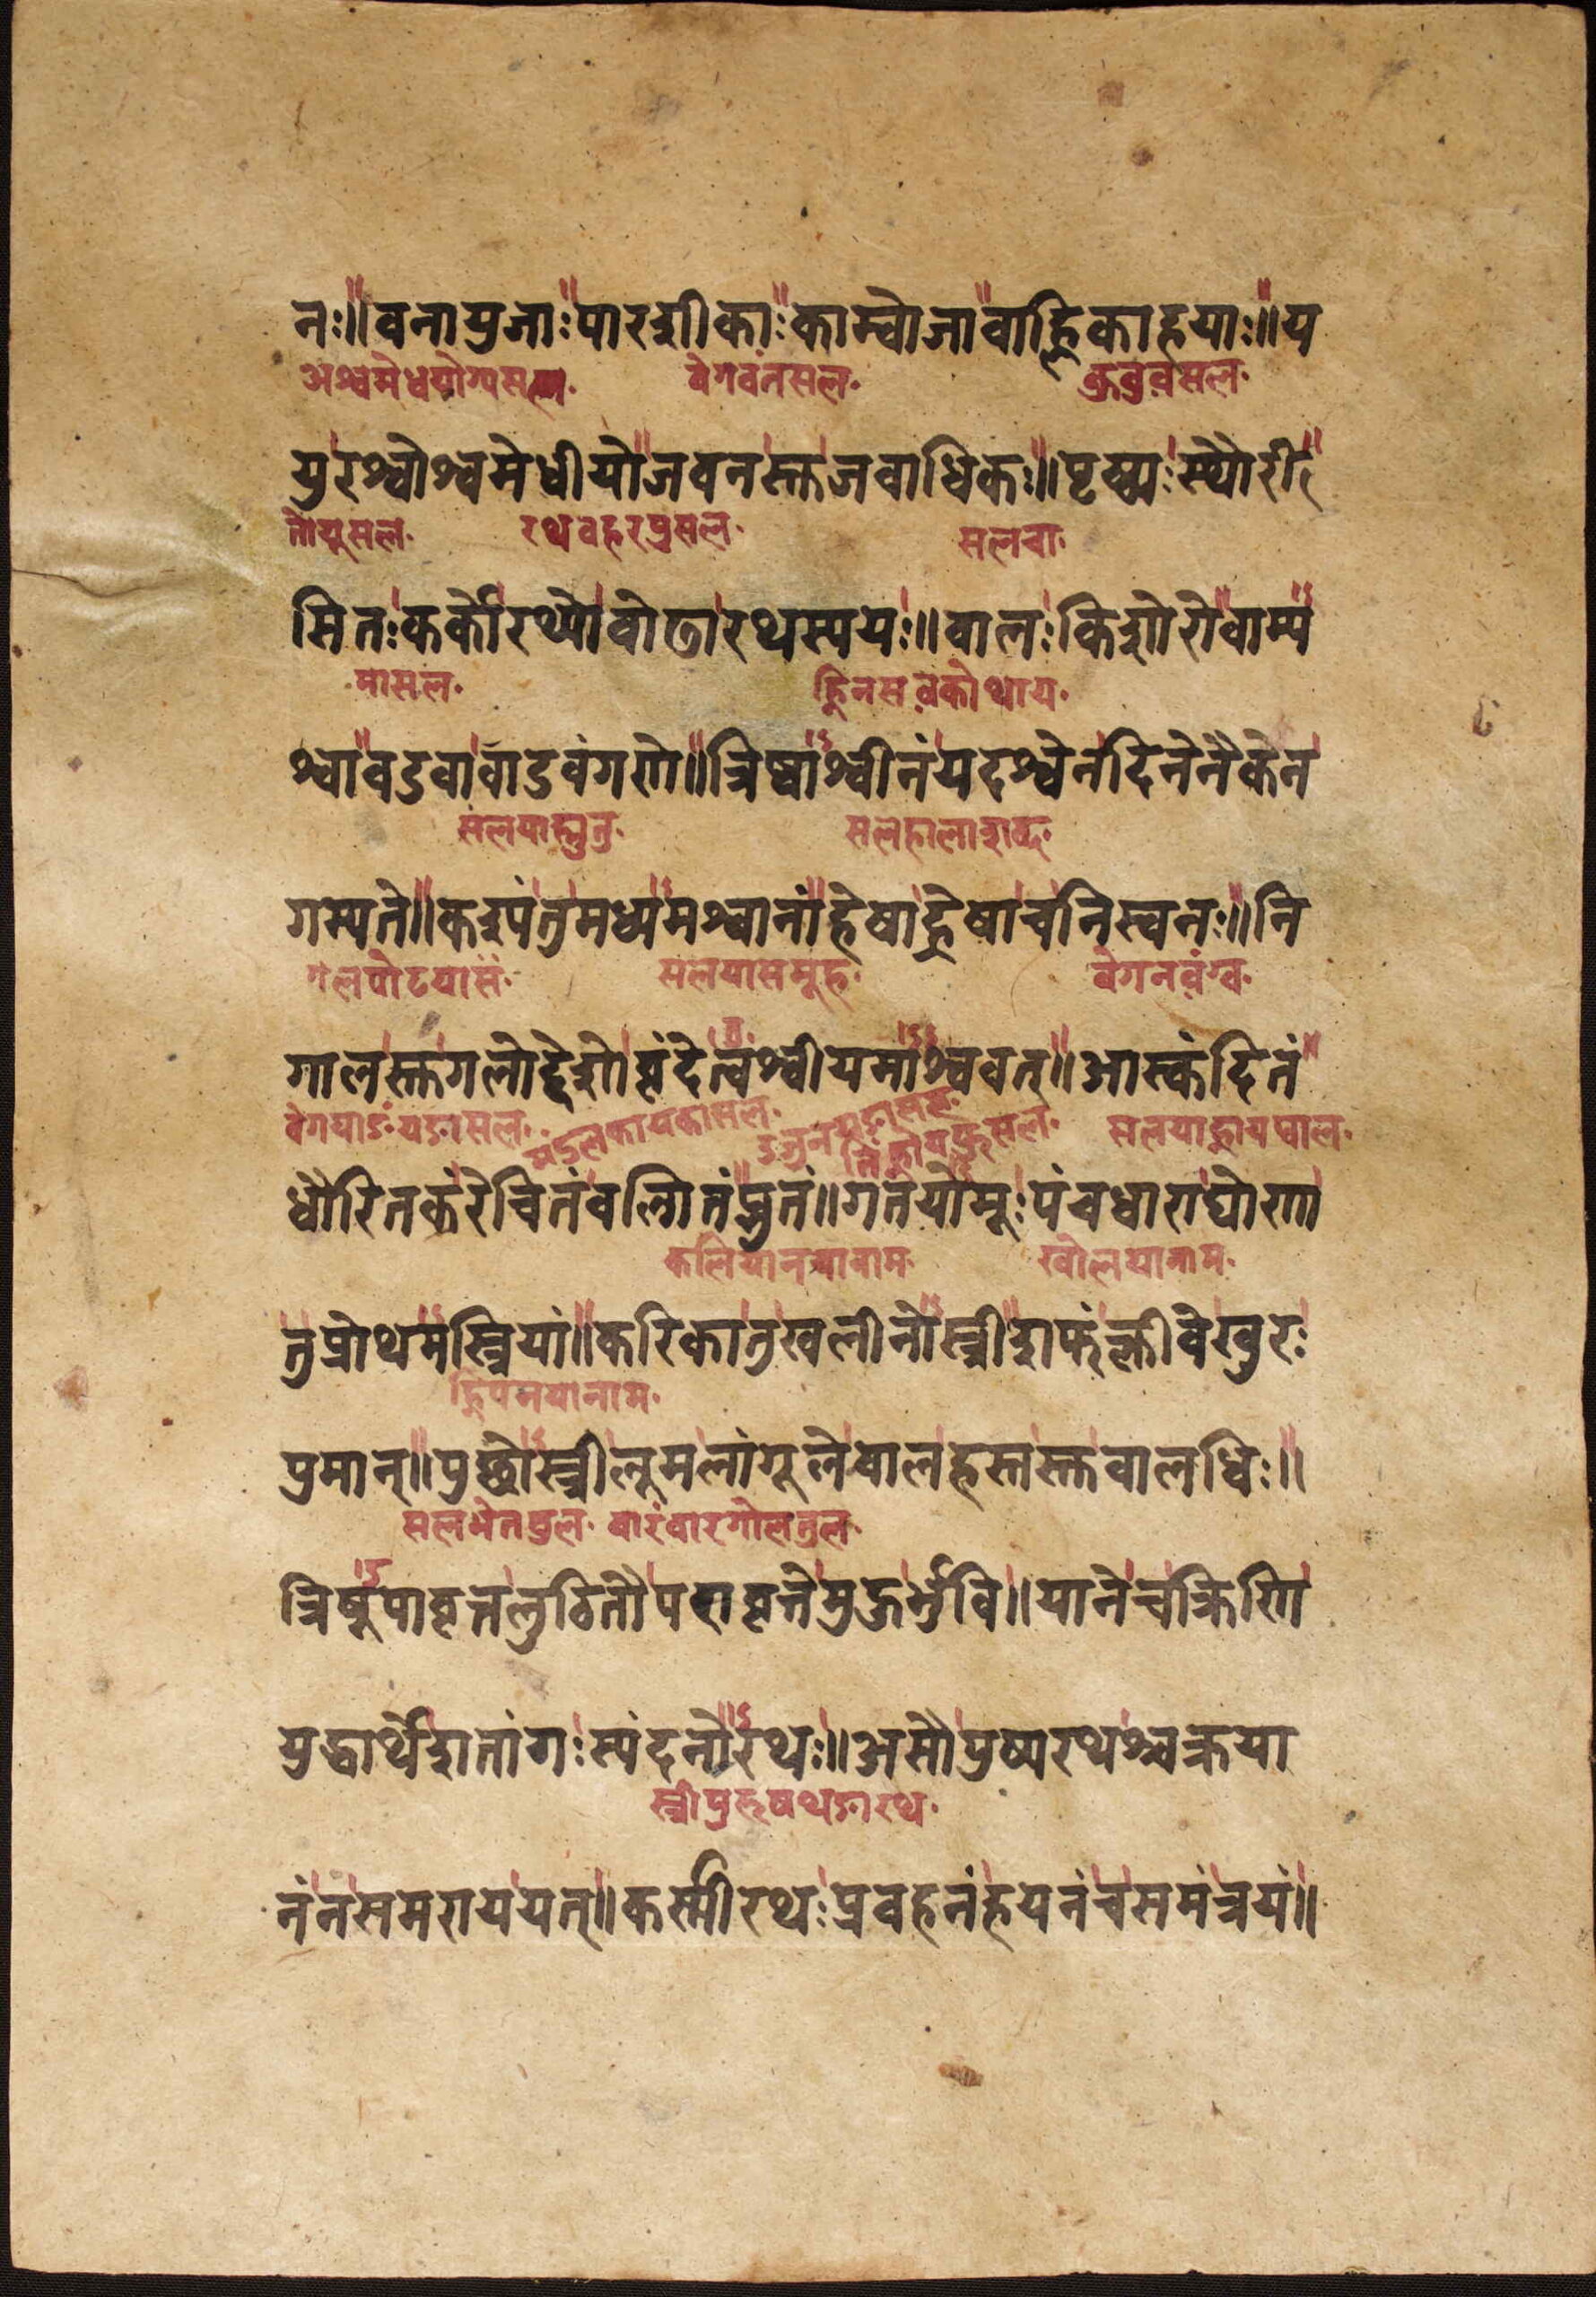 नः॥वनायुजाःपारशीकाःकाम्वोजावाह्लिकाहयाः॥य
अश्वमेधयोग्यसल. वेगवंतसल.
युरश्वोश्वमेधीयोजवनस्तुजवाधिकः॥पृष्ठ्यःस्थौरी
रथवहरपुसल. सलचा.
सितःकर्कोरथ्योवोढारथस्ययः॥वालःकिशोरोवाम्य
मासल.
श्वावडवावाडवंगणे॥त्रिष्वाश्वीनंयदश्वेनदिनेनैकेन
सलयाह्मुतु. सलहालाशब्द.
गम्यते॥कश्यंतुमध्यमश्वानांहेषाह्रेषाचनिस्वनः॥नि
गलपोटयासं. सलयासमूह. वेगनवंग्व.
गालस्तुगलोद्देशोवृंदेत्वश्वीयमाश्ववत्॥आस्कंदितं
वेगयाङंयङासल. सलयाह्वायघाल.
धौरितकंरेचितंवल्गितंप्लुतं॥गतयोमूःपंचधाराघोणा
कलियानयानाम. खोलयानाम.
तुप्रोथमस्त्रियां॥कविकातुखलीनोस्त्रीशफंक्लीवेखुरः
ह्लिपनयानाम.
पुमान्॥पुच्छोस्त्रीलूमलांगूलेवालहस्तस्तुवालधिः॥
सलभेतपुल. वारंवारगोलतुल.
त्रिषूपावृत्तलुठितौपरावृत्तेमुहुर्भुवि॥यानेचक्रिणि
युद्धार्थेशतांगःस्यंदनोरथः॥असौपुष्यरथश्चक्रया
स्त्रीपुरूषथङारथ.
नंनसमराययत्॥कर्स्मीरथःप्रवहनंहयनंचसमंत्रयं॥